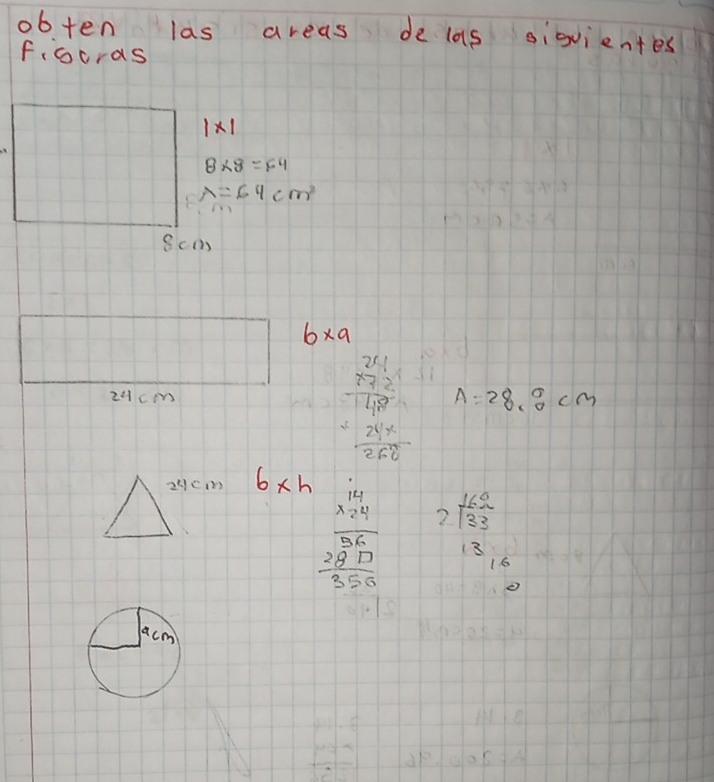 obten las areas de las siguientes
figuras
l x l
8 x 8 = 64
A = 64 cm²
8 cm
b x a
24
48
+ 24x
268
A = 28.8 cm
24 cm
24 cm
b x h
14
x 24
56
28
356
168
2 33
13
16
0
9 cm